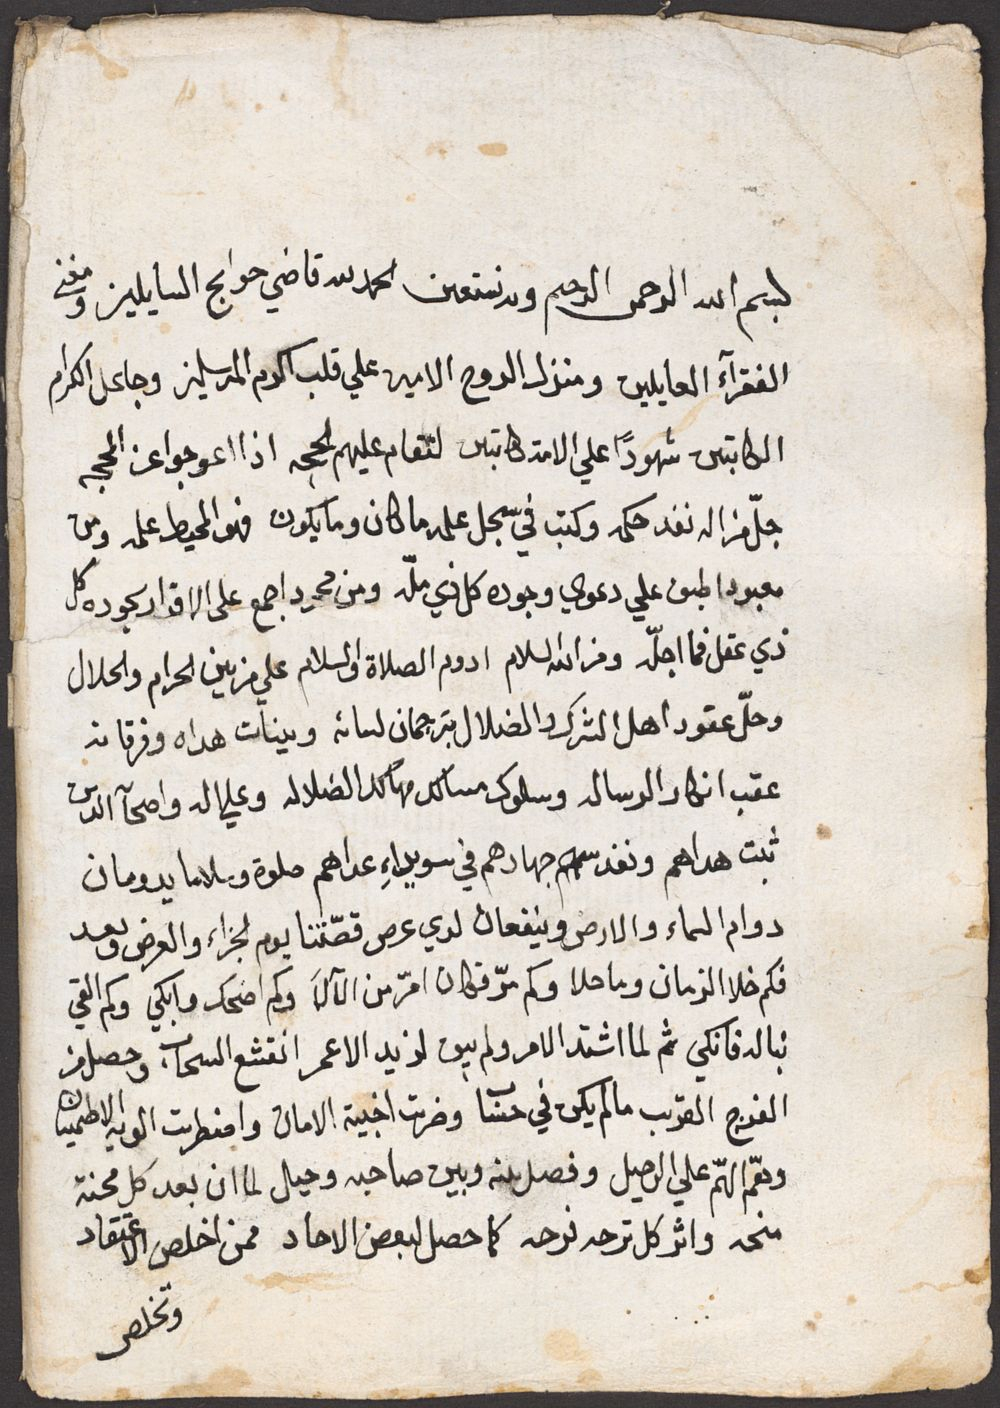 بسم الله الرحمن الرحيم وبه نستعين الحمد لله قاضي حوايج السايلين ومغني
الفقرآء العايلين ومنزل الروح الامين علي قلب اكرم المرسلين وجاعل الكرام
الكاتبين شهودًا علي الامة كاتبين لتقام عليهم الحجه اذا اعوجوا عن المحجه
جلّ من اله نفد حكمه وكتب في سجل علمه ما كان وما يكون فهو المحيط علمه ومن
معبود اطبق علي دعوي وجوده كل ذي ملّه ومن محمود اجمع على الاقرار بجوده كل
ذي عقل فما اجلّه ومن الله السلام ادوم الصلاة والسلام علي من بين الحرام والحلال
وحلّ عقود اهل الشرك والضلال بترجمان لسانه وبينات هداه وفرقانه
عقب انكار الرساله وسلوك مسالك مهالك الضلاله وعلي اله واصحآبه الذين
ثبت هداهم ونفد سهم جهادهم في سويداءِ عداهم صلوة وسلاما يدومان
دوام السماء والارض وينفعان لدي عرض قصّتنا يوم الجزاء والعرض وبعد
فكم خلا الزمان وما حلا وكم مرّ فكان امرّ من الآلآء وكم اضحك وابكي وكم القي
نباله فانكي ثم لما اشتد الامر ولم يبق لزيد الا عمر انقشع السحاب وحصل من
الفرج القريب ما لم يكن في حساب وضربت اخبية الامان وامنطرت الوية الاطميان
وهمّ الهمّ علي الرحيل وفصل بينه وبين صاحبه وحيل لما ان بعد كل محنة
منحه واثر كل ترحه فرحه كما حصل لبعض الاحاد ممن اخلص الاعتقاد
وتخلص